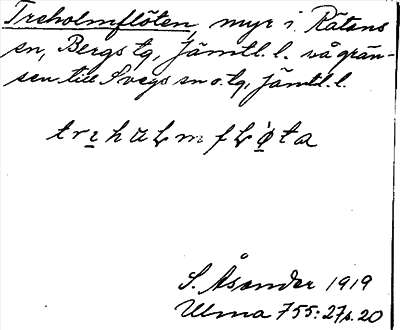 Treholmflöten, myr i Rätans
sn, Bergs tg, Jämtl. l. vå grän-
sen till Svegs sn o. tg, Jämtl. l.
S. Åsander 1919
Ulma 755:27 s. 20